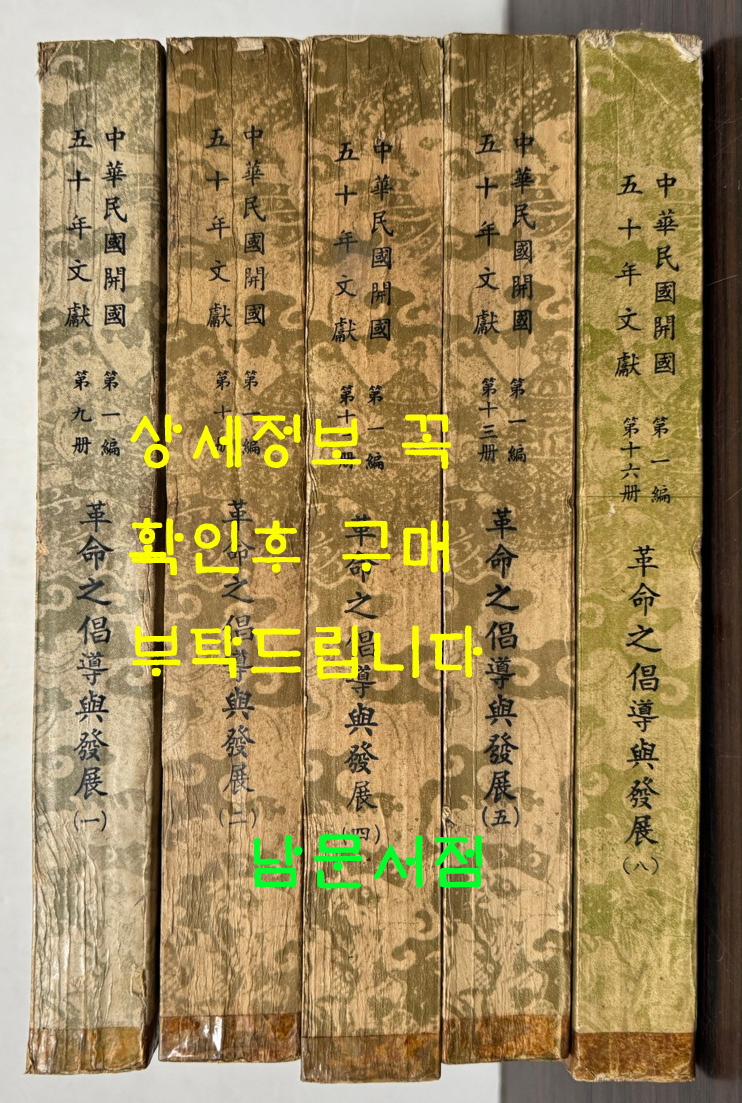 中華民國開國
五十年文獻
第一編
第九册
革命之倡導與發展
(一)
中華民國開國
五十年文獻
第一編
第十
革命之倡導與發展
(二)
中華民國開國
五十年文獻
第一編
第十 册
革命之倡導與發展
(四)
中華民國開國
五十年文獻
第一編
第十三册
革命之倡導與發展
(五)
中華民國開國
五十年文獻
第一編
第十六册
革命之倡導與發展
(八)
상세정보 꼭
확인후 구매
부탁드립니다
남문서점